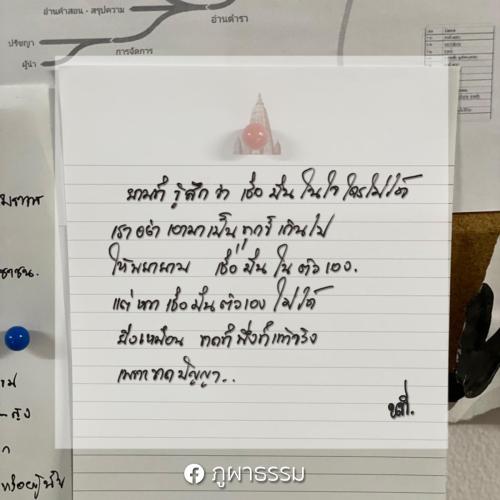 อ่านคำสอน - สรุปความ
อ่านตำรา
ปรัชญา
การจัดการ
ผู้นำ
ยามที่ รู้สึก ว่า เชื่อ มั่น ในใจ ใครไม่ได้
เราอย่า เอามาเป็น ทุกข์ เกินไป
ให้พยายาม เชื่อ มั่น ใน ตัวเอง.
แต่ หาก เชื่อมั่นตัวเอง ไม่ได้
นี่งเหมือน ขาดที่พึ่งที่แท้จริง
เพราะขาดปัญญา..
ภูผาธรรม